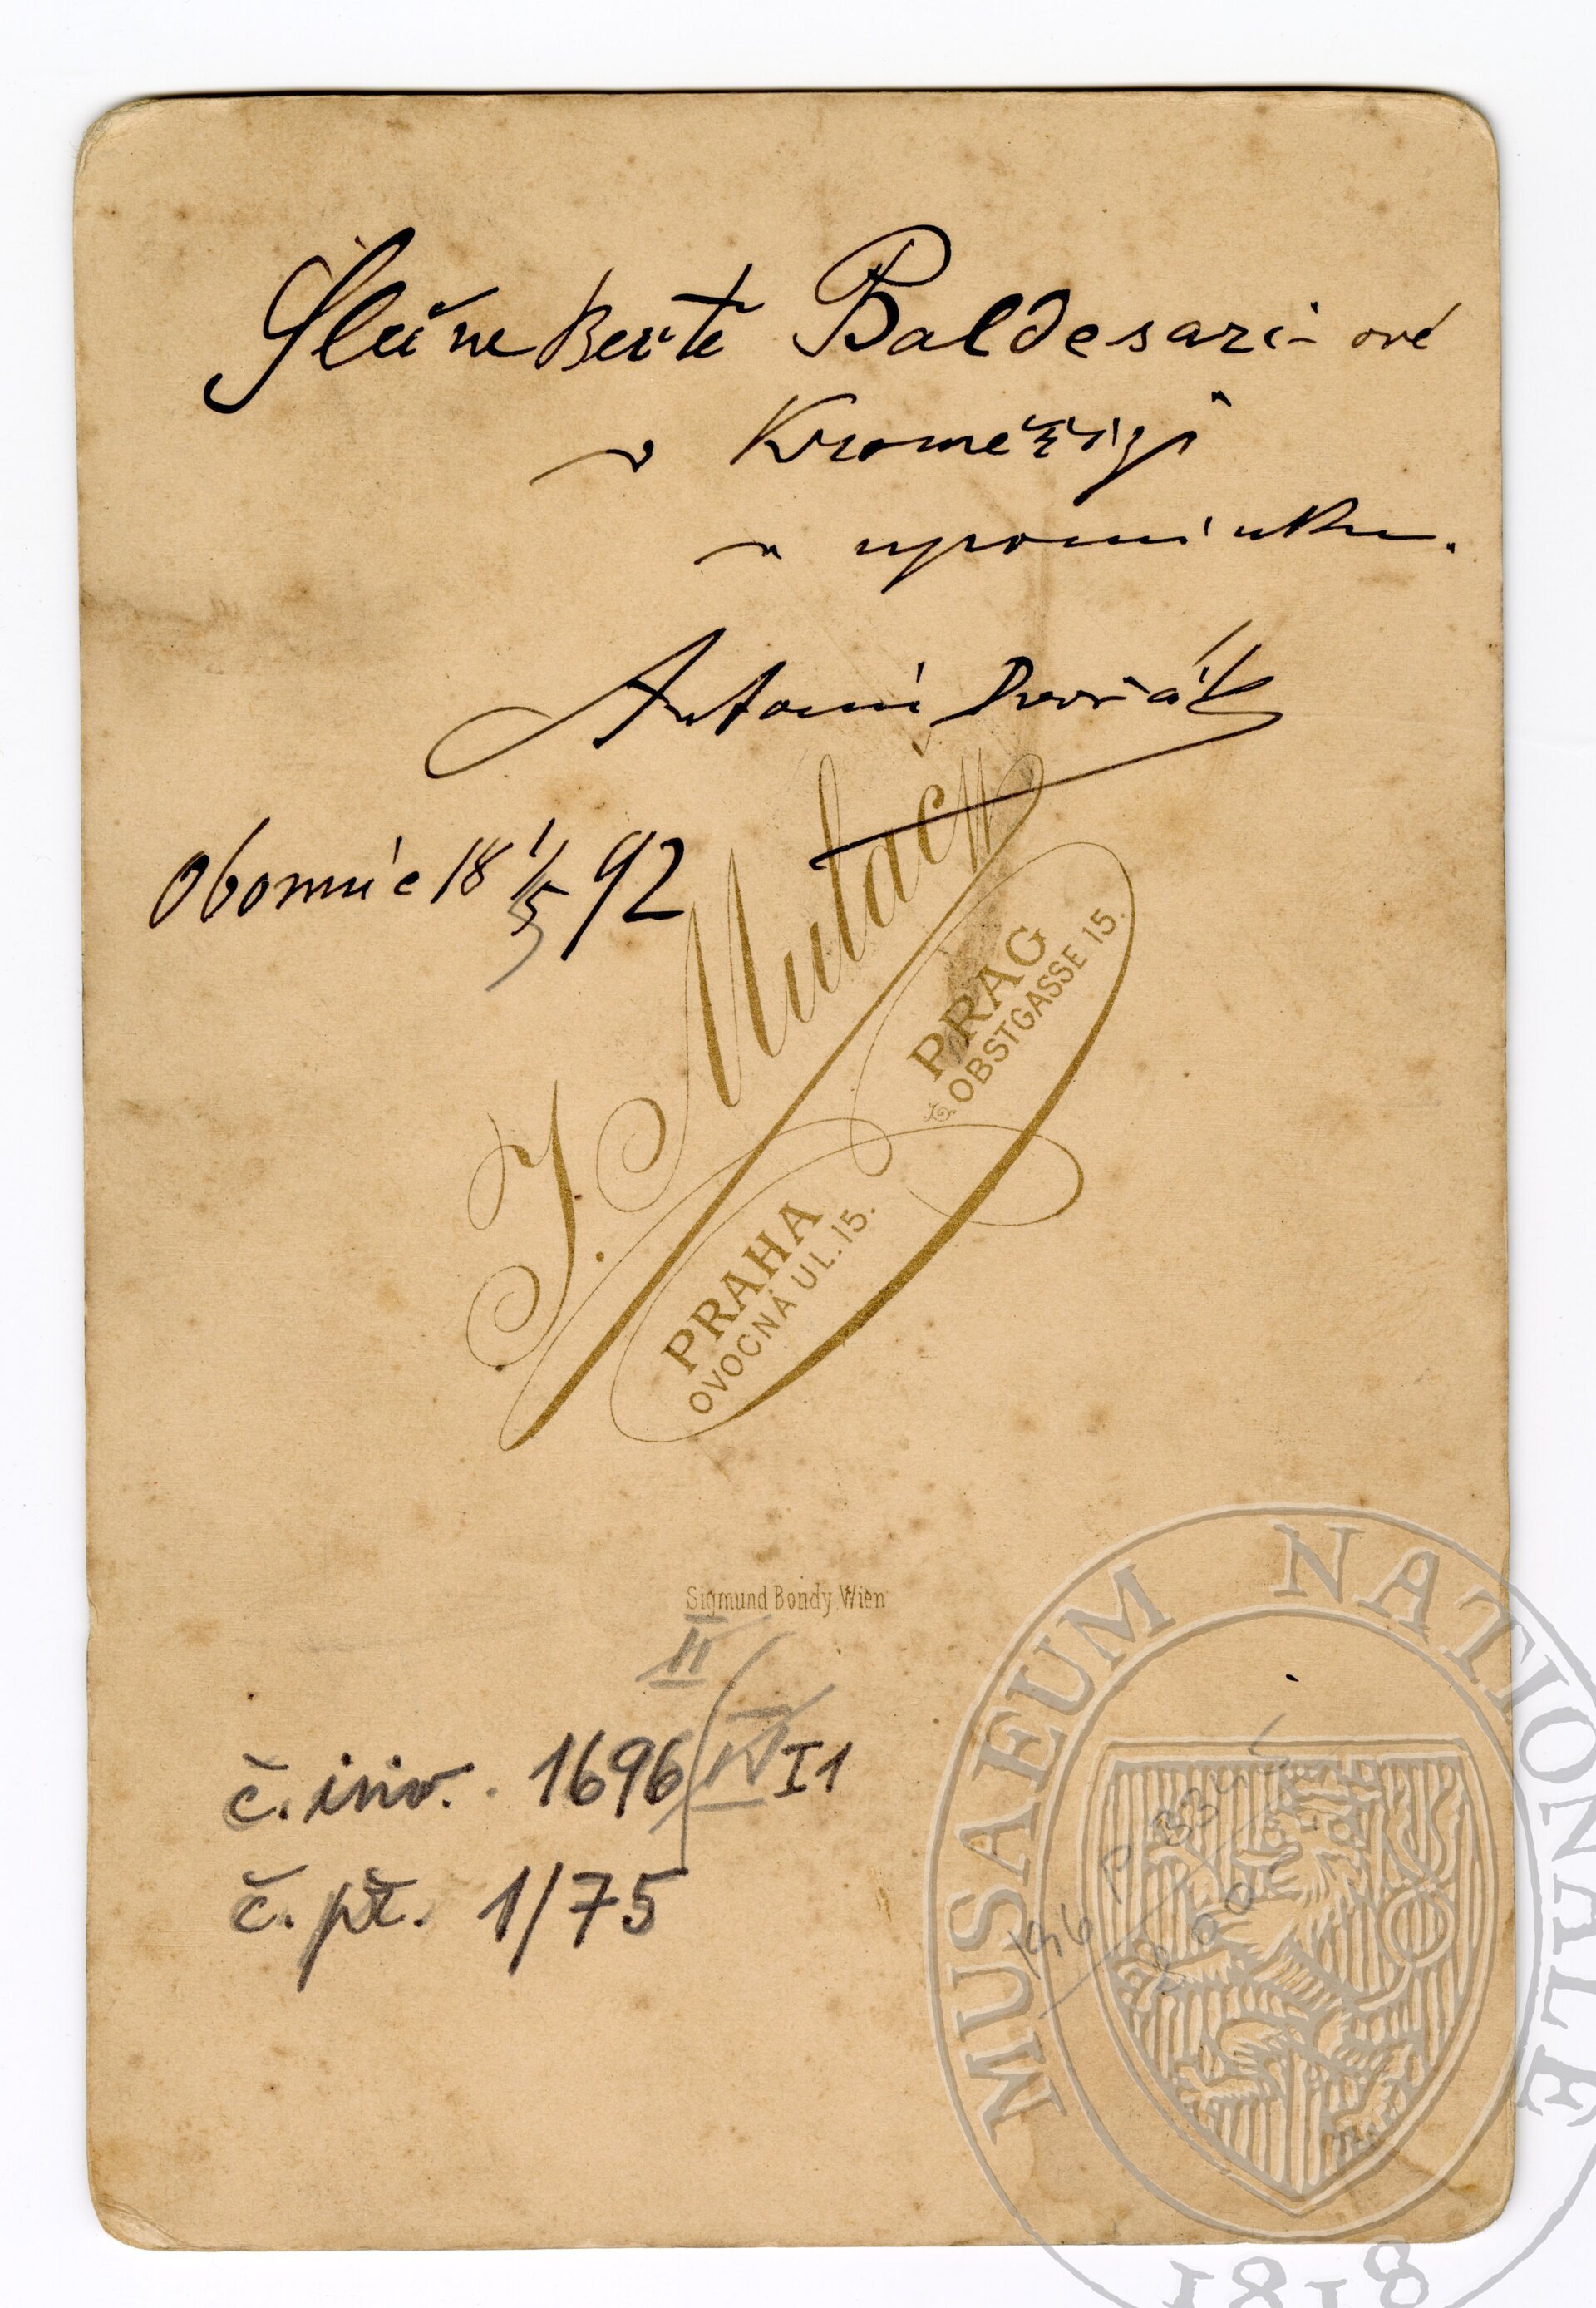 Slečne Bertě Baldesari-ové
v Kroměřizi
v upomínku.
Antonín Dvořák
18 1/5 92
J. Mulač
PRAG
OBSTGASSE 15.
PRAHA
OVOCNÁ UL. 15.
Sigmund Bondy Wien
II
č. inv. 1696/IV I1
č. př. 1/75
MUSAEUM NATIONALE
1818